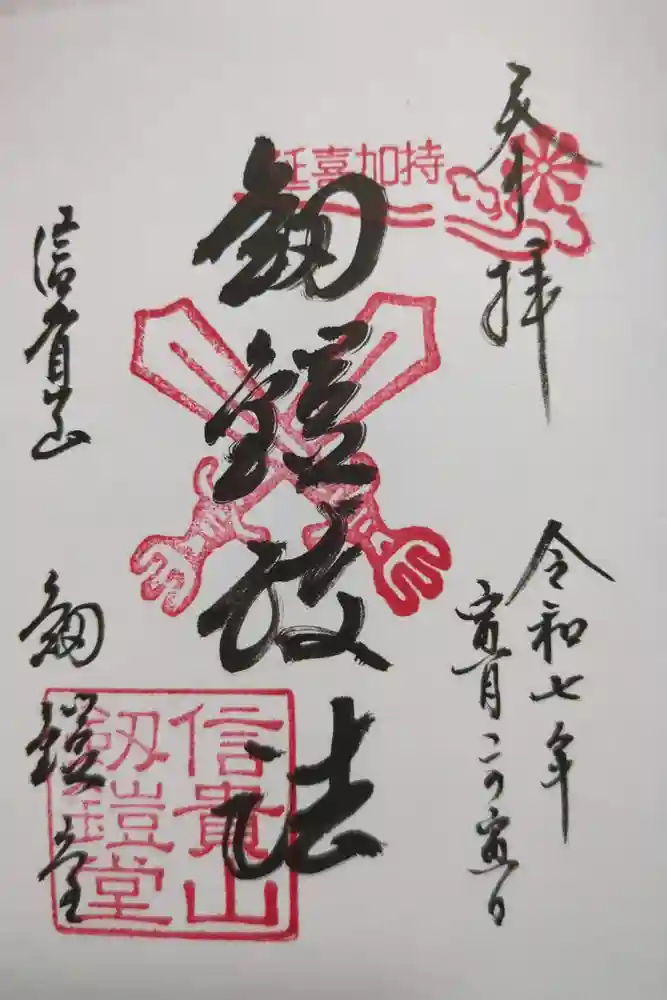 奉拝
令和七年
寅月二の寅日
延喜加持
劔鎧護法
信貴山
劔鎧堂
信貴山
劔鎧堂